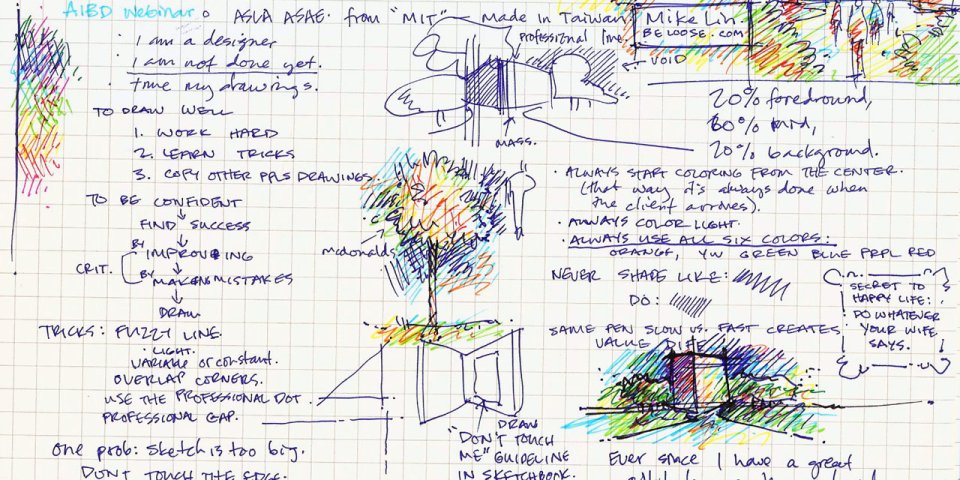 AIBD Webinar: ASLA ASAE. from "MIT" made in Taiwan
Mike Lin
BELOOSE.COM
I am a designer
I am not done yet.
time my drawings.
professional line.
VOID
MASS.
TO DRAW WELL
1. WORK HARD
2. LEARN TRICKS
3. COPY OTHER PPLS DRAWINGS.
TO BE CONFIDENT
FIND SUCCESS
BY IMPROVING
CRIT.
BY MAKING MISTAKES
DRAW
TRICKS: FUZZY LINE.
LIGHT.
VARIABLE or constant.
OVERLAP CORNERS.
USE THE PROFESSIONAL DOT.
PROFESSIONAL GAP.
one prob: sketch is too big.
DON'T TOUCH THE EDGE.
mcdonalds
DRAW
"DON'T TOUCH
ME" GUIDELINE
IN SKETCHBOOK.
20% foredround,
60% mid,
20% background.
• ALWAYS START COLORING FROM THE CENTER.
(that way it's always done when
the client arrives).
• ALWAYS COLOR LIGHT.
• ALWAYS USE ALL SIX COLORS:
ORANGE, YW GREEN BLUE PRPL RED
NEVER SHADE LIKE:
DO:
SAME PEN SLOW VS. FAST CREATES
VALUE DIFF.
SECRET TO
HAPPY LIFE:
DO WHATEVER
YOUR WIFE
SAYS.
Ever since I have a great